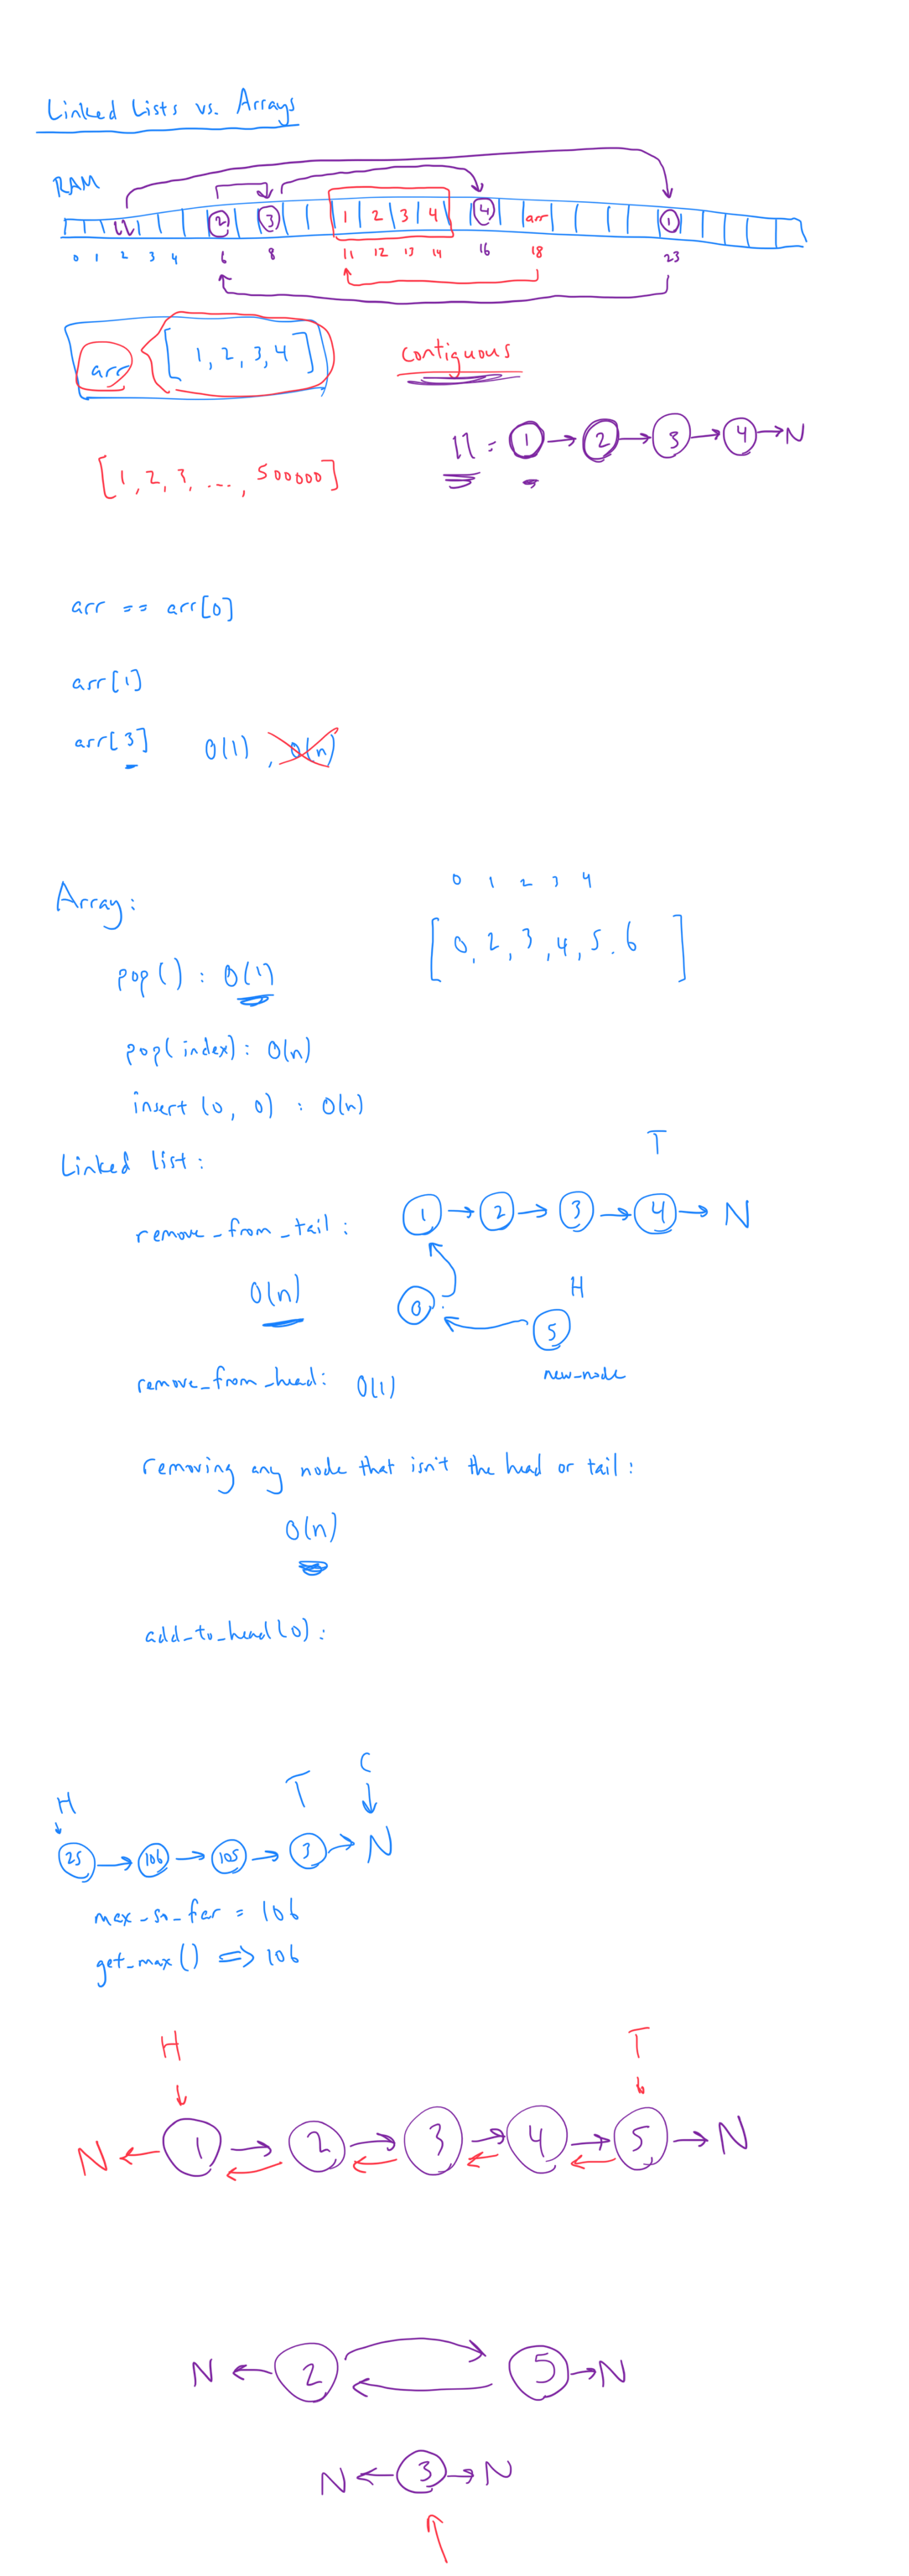 Linked Lists vs. Arrays
RAM
ll 2 3 1 2 3 4 4 arr 1
0 1 2 3 4 6 8 11 12 13 14 16 18 23
arr [ 1, 2, 3, 4 ]
contiguous
ll = 1 → 2 → 3 → 4 → N
[ 1, 2, 3, ..., 500000 ]
arr == arr[0]
arr[1]
arr[3] O(1), O(n)
0 1 2 3 4
Array:
[ 0, 2, 3, 4, 5. 6 ]
pop() : O(1)
pop(index): O(n)
insert (0, 0) : O(n)
T
Linked list:
1 → 2 → 3 → 4 → N
remove_from_tail:
H
O(n)
0 5
new_node
remove_from_head: O(1)
removing any node that isn't the head or tail:
O(n)
add_to_head(0):
C
H T
25 → 106 → 105 → 3 → N
max_so_far = 106
get_max() => 106
H T
N ← 1 → 2 → 3 → 4 → 5 → N
N ← 2 5 → N
N ← 3 → N